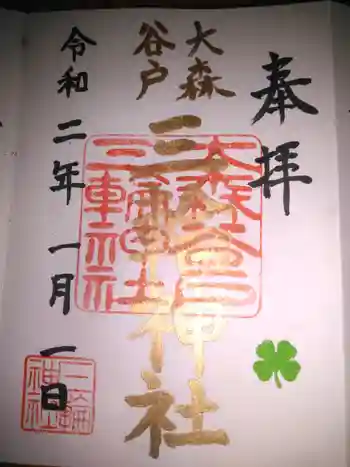 奉拝
大森
谷戸
三輪神社
大森谷戸
三輪神社
令和二年一月一日
三輪
神社